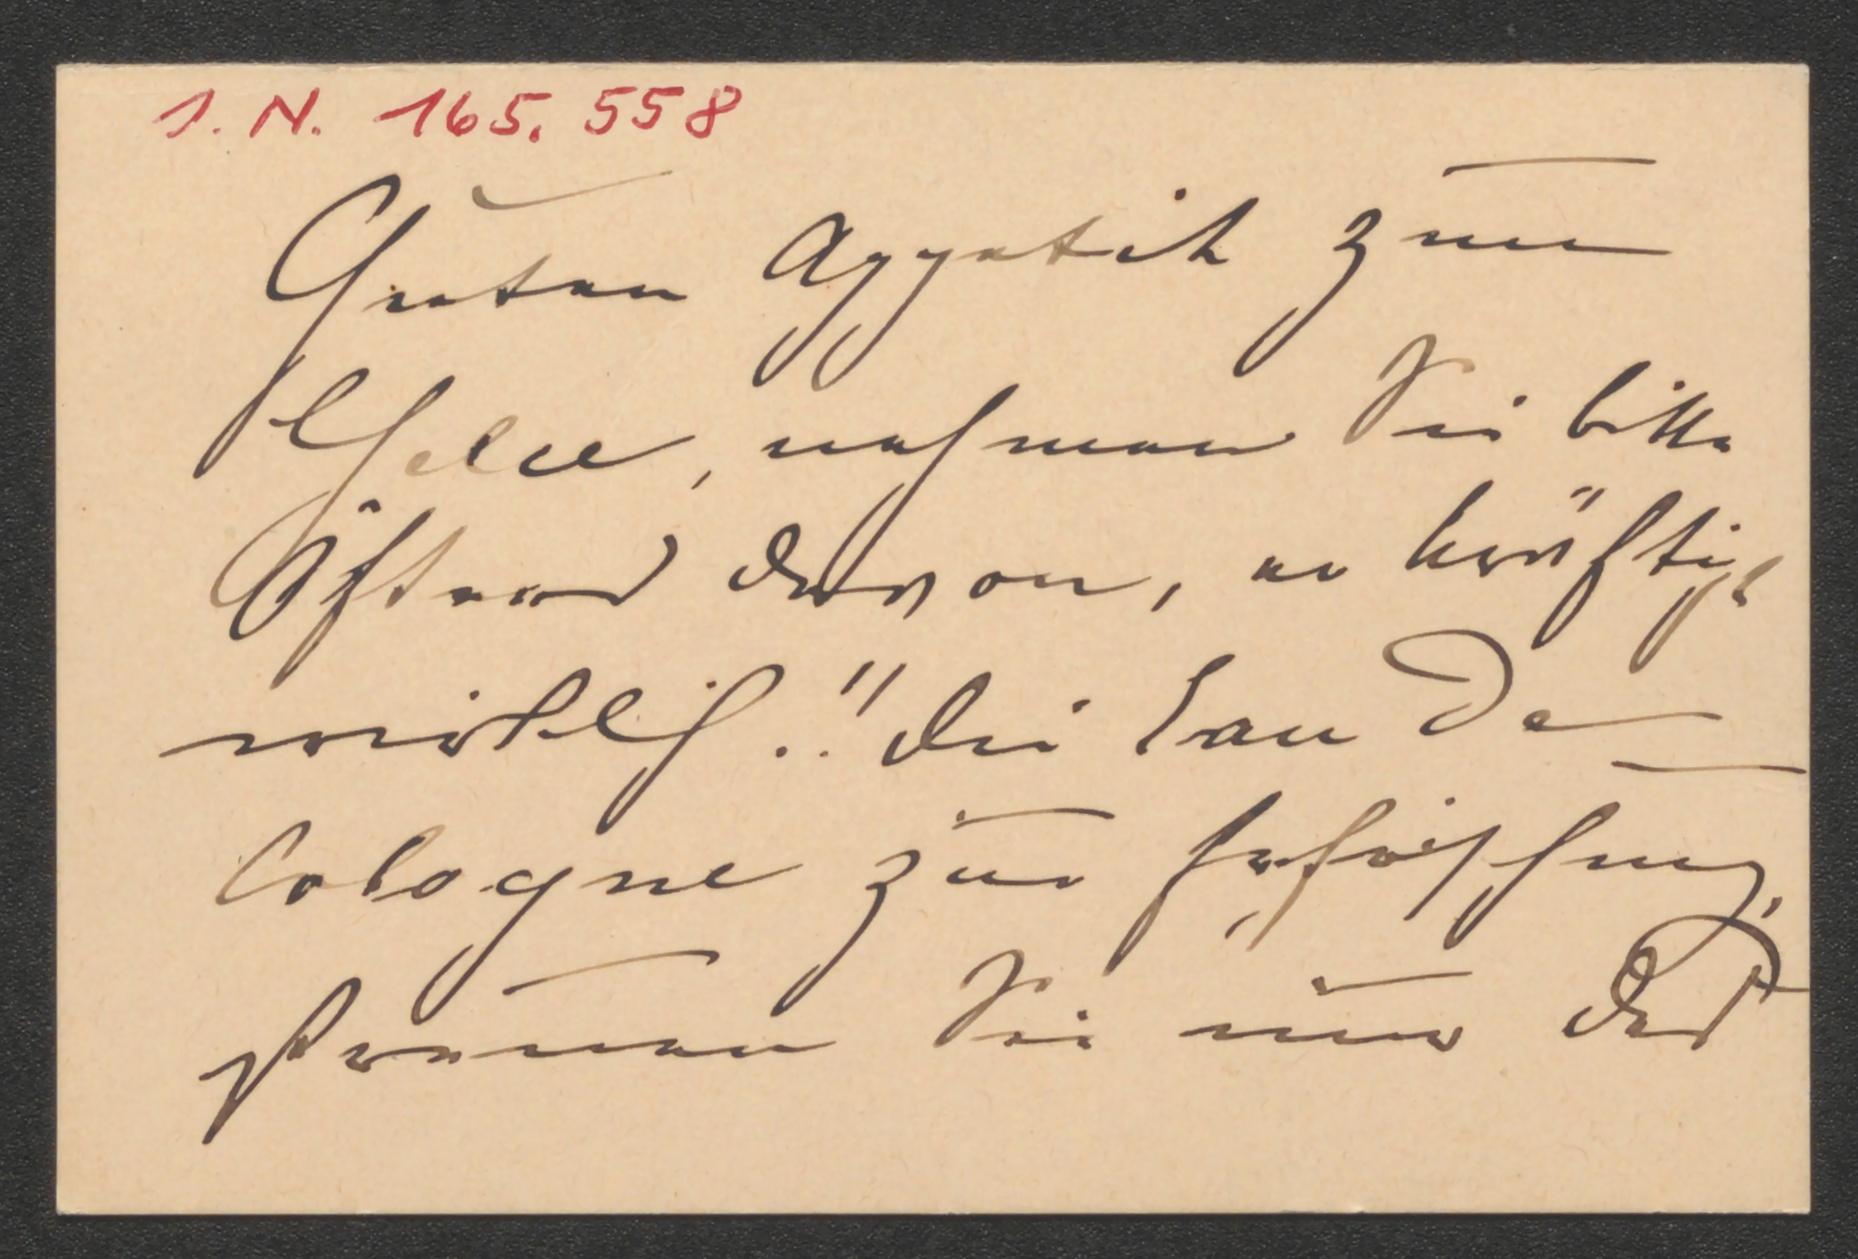 I. N. 165.558
Guten Appetit zum
Gelee, nehmen Sie bitte
Öfters davon, er kräftigt
wirklich.." die Eau De
Cologne zur Erfrischung,
Sie nur das